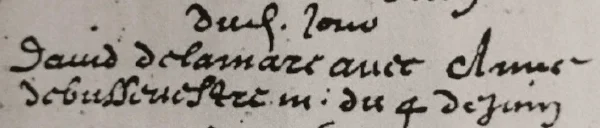 Dud. Jour
David delamare avec Anne
debusseuestre m: du 4 de Juin